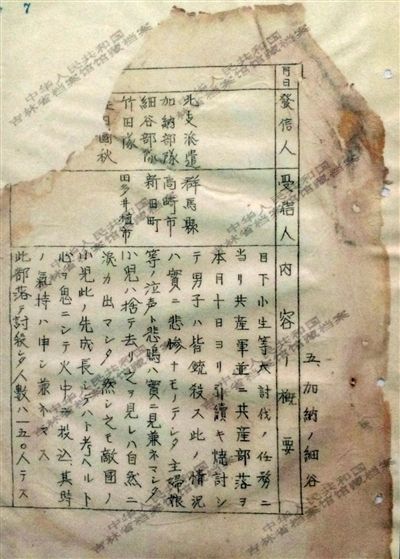 7
五、加納ノ細谷
月日
發信人
受信人
内容ノ概要
北支派遣
加納部隊
細谷部隊
竹田隊
田國秋
群馬縣
高崎市
新田町
田多井植市
目下小生等大討伐ノ任務ニ
当リ共産軍並ニ共産部落ヲ
本月十日ヨリ引續キ燒討シ
テ男子ハ皆銃殺ス此ノ情況
ハ實ニ悲惨ナモノデシタ主婦娘
等ノ泣声ト悲鳴ハ實ニ見兼ネマシタ
小児ハ捨テ去リ之ヲ見レハ自然ニ
涙カ出マシタ然シ之モ敵國ノ
小児此ノ先成長シテハト考ヘルト
心ヲ ニシテ火中ニ投込ム其時
ノ氣持ハ申シ兼ネマス
此部落デ討殺シタ人数ハ一五〇人デス
中华人民共和国
吉林省档案馆馆藏档案